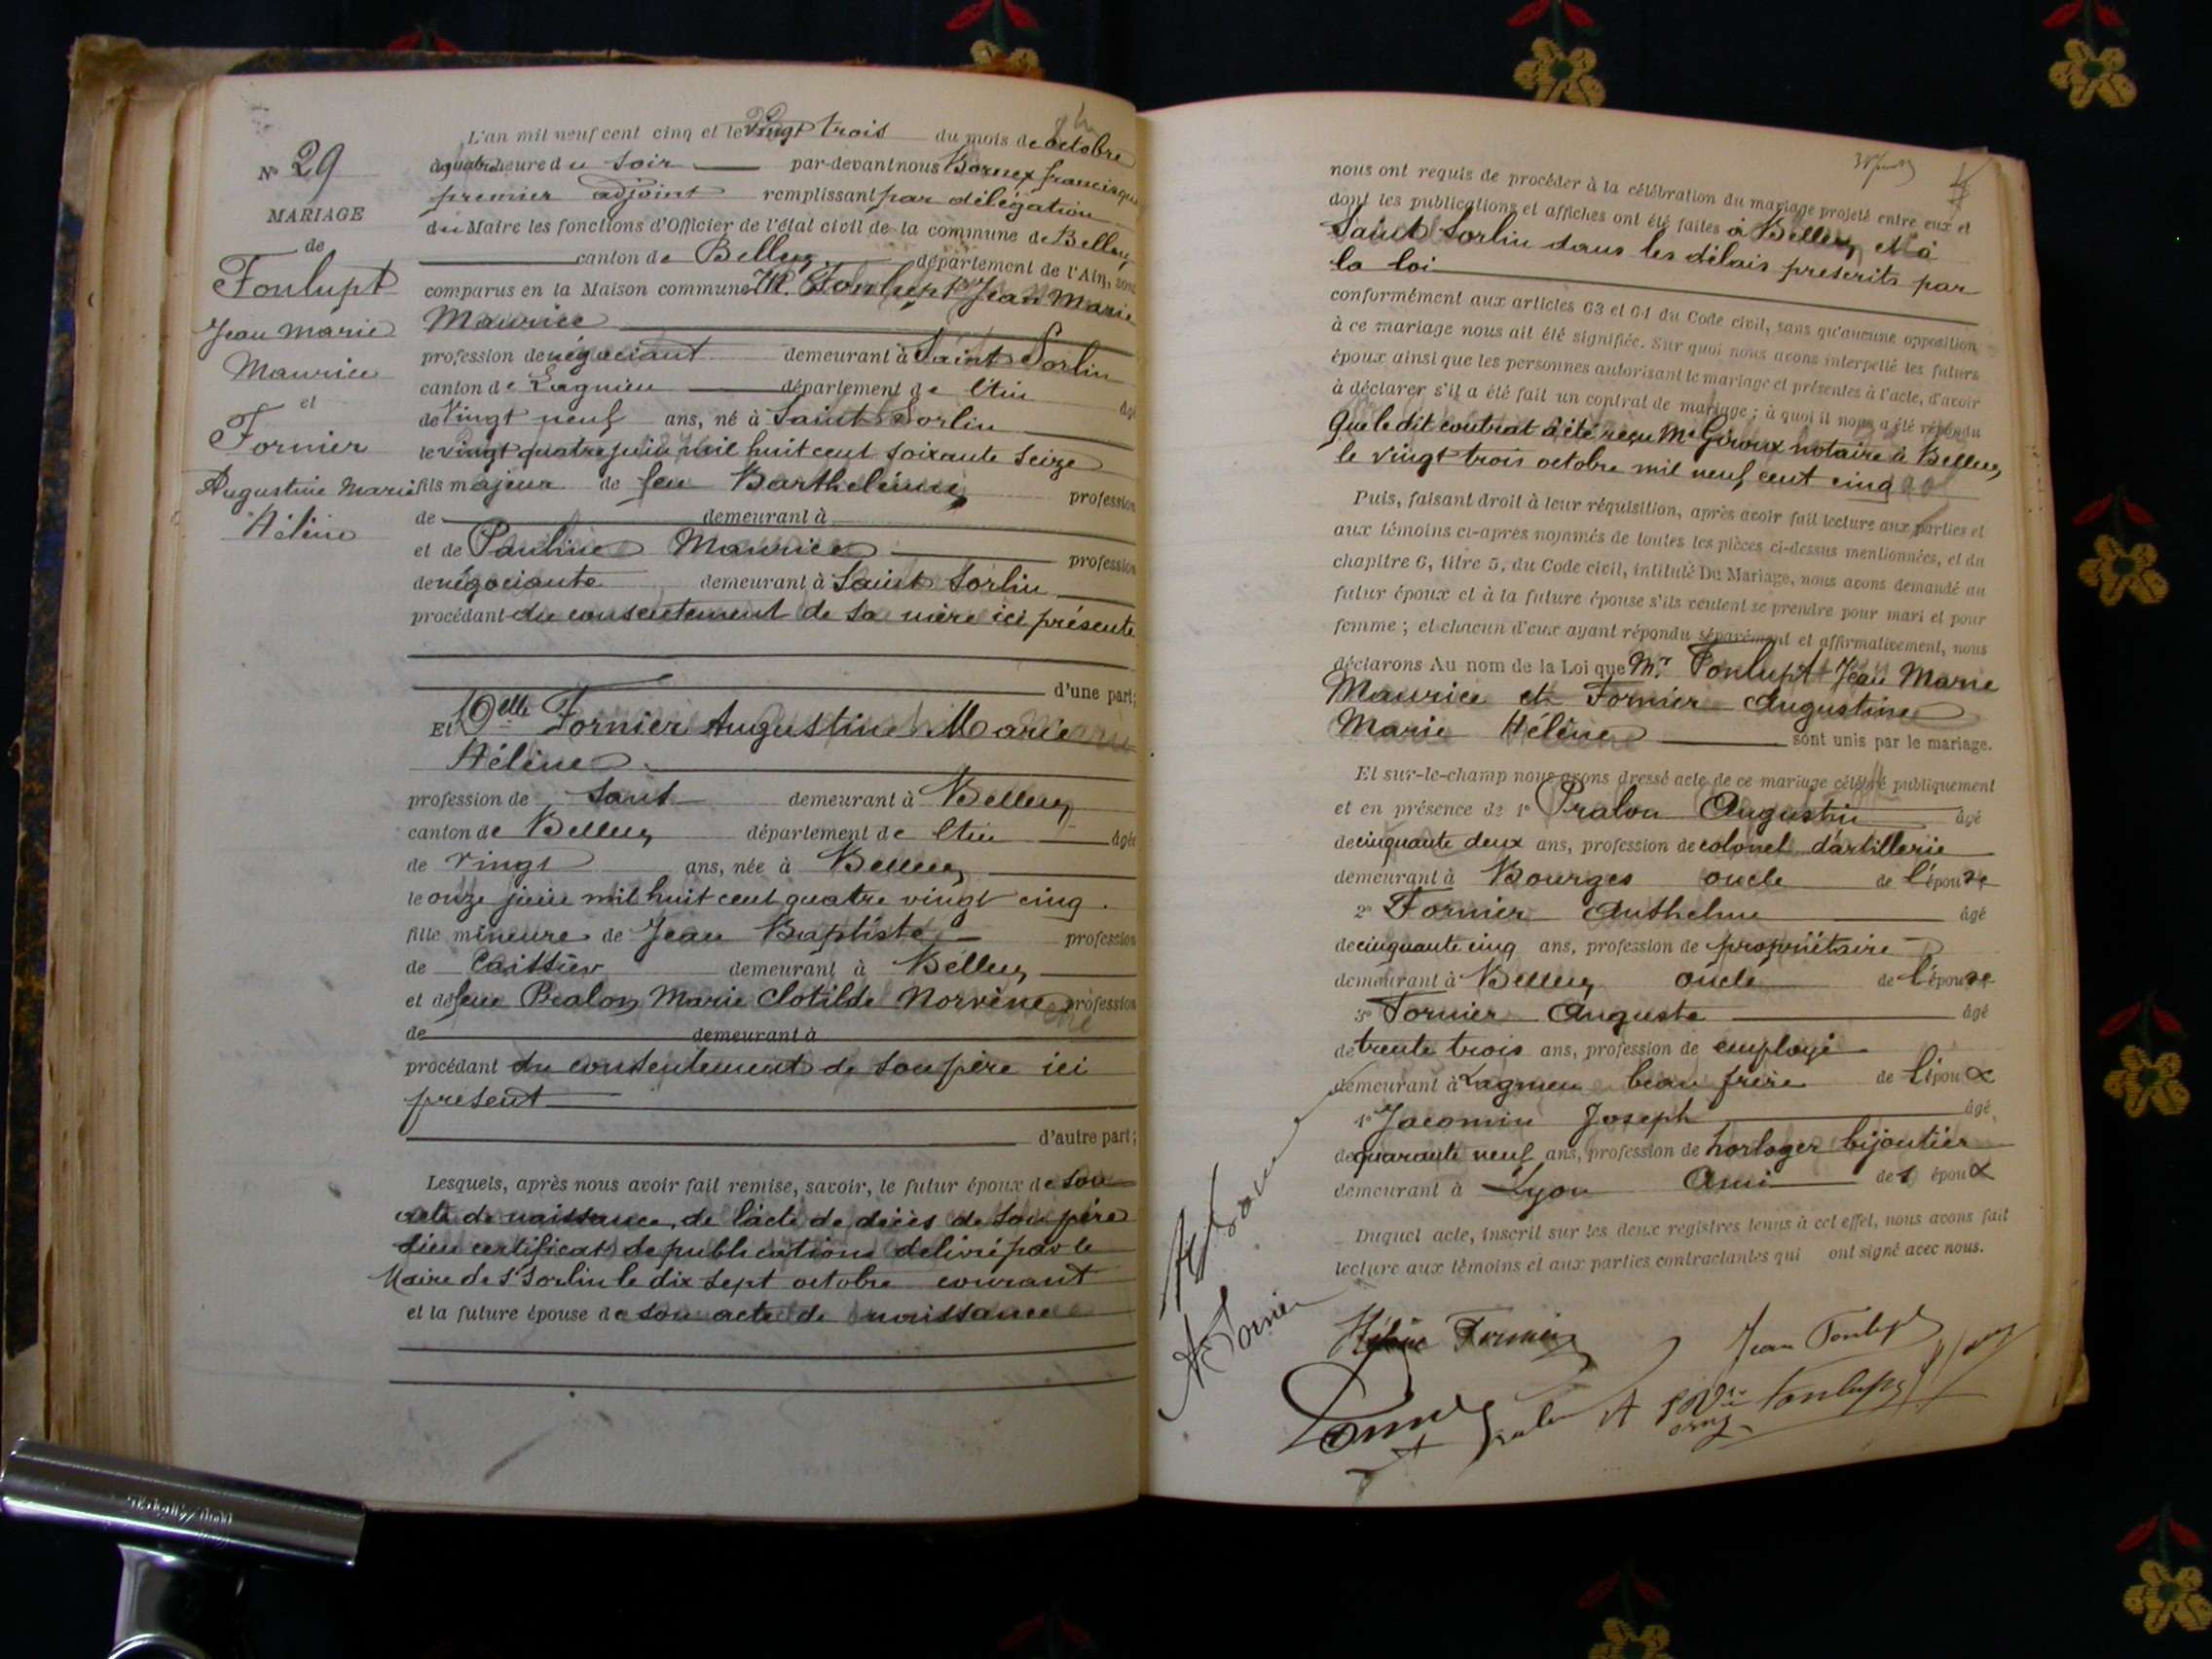 N° 29
MARIAGE
de
Foulupt
Jean Marie
Maurice
et
Fornier
Augustine Marie
Hélène
L'an mil neuf cent cinq et le vingt trois du mois de octobre
à quatre heure du soir par-devant nous Bornex francisque
premier adjoint remplissant par délégation
du Maire les fonctions d'Officier de l'état civil de la commune de Belley
canton de Belley département de l'Ain, sont
comparus en la Maison commune M. Foulupt Jean Marie
Maurice
profession de négociant demeurant à Saint Sorlin
canton de Lagnieu département de l'Ain âgé
de Vingt neuf ans, né à Saint Sorlin
le vingt quatre juin mil huit cent soixante seize
fils majeur de feu Barthélemy profession
de demeurant à
et de Pauline Maurice profession
de négociante demeurant à Saint Sorlin
procédant du consentement de sa mère ici présente
d'une part;
Et Delle Fornier Augustine Marie
Hélène
profession de sans demeurant à Belley
canton de Belley département de l'Ain âgée
de vingt ans, née à Belley
le onze juin mil huit cent quatre vingt cinq.
fille mineure de Jean Baptiste profession
de Caissier demeurant à Belley
et de feue Pralon Marie Clotilde profession
de demeurant à
procédant du consentement de son père ici
présent
d'autre part;
Lesquels, après nous avoir fait remise, savoir, le futur époux de son
acte de naissance, de l'acte de décès de son père
d'un certificat de publications délivré par le
Maire de St Sorlin le dix sept octobre courant
et la future épouse de son acte de naissance
nous ont requis de procéder à la célébration du mariage projeté entre eux et
dont les publications et affiches ont été faites à Belley et à
Saint Sorlin dans les délais prescrits par
la loi
conformément aux articles 63 et 64 du Code civil, sans qu'aucune opposition
à ce mariage nous ait été signifiée. Sur quoi nous avons interpellé les futurs
époux ainsi que les personnes autorisant le mariage et présentes à l'acte, d'avoir
à déclarer s'il a été fait un contrat de mariage; à quoi il nous a été répondu
Que le dit contrat a été reçu Me Giroux notaire à Belley
le vingt trois octobre mil neuf cent cinq
Puis, faisant droit à leur réquisition, après avoir fait lecture aux parties et
aux témoins ci-après nommés de toutes les pièces ci-dessus mentionnées, et du
chapitre 6, titre 5, du Code civil, intitulé Du Mariage, nous avons demandé au
futur époux et à la future épouse s'ils veulent se prendre pour mari et pour
femme; et chacun d'eux ayant répondu séparément et affirmativement, nous
déclarons Au nom de la Loi que Mr Foulupt Jean Marie
Maurice et Fornier Augustine
Marie Hélène sont unis par le mariage.
Et sur-le-champ nous avons dressé acte de ce mariage célébré publiquement
et en présence de 1° Pralon Augustin âgé
de cinquante deux ans, profession de colonel d'artillerie
demeurant à Bourges oncle de l'épouse
2° Fornier Anthelme âgé
de cinquante cinq ans, profession de propriétaire
demeurant à Belley oncle de l'épouse
3° Fornier Auguste âgé
de trente trois ans, profession de employé
demeurant à Lagnieu beau frère de l'époux
4° Jacomin Joseph âgé
de quarante neuf ans, profession de horloger bijoutier
demeurant à Lyon Ami de l'époux
Duquel acte, inscrit sur les deux registres tenus à cet effet, nous avons fait
lecture aux témoins et aux parties contractantes qui ont signé avec nous.
A Fornier
Hélène Fornier
Jean Foulupt
Vve Foulupt